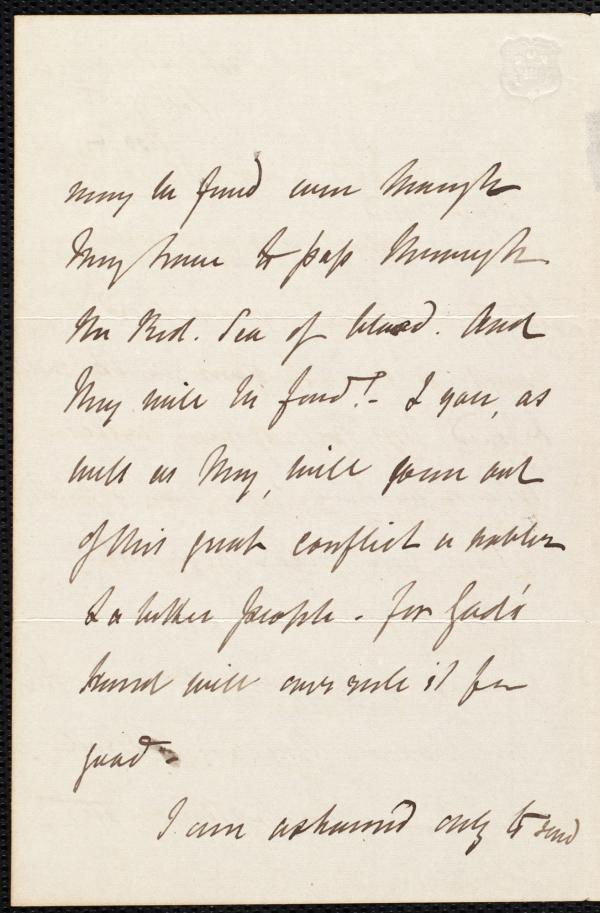 may be freed even though
they have to pass through
the Red. Sea of blood. And
they will be freed! - & you, as
well as they, will come out
of this great conflict a nobler
& a better people - for God's
hand will over rule it for
good -
I am ashamed only to send